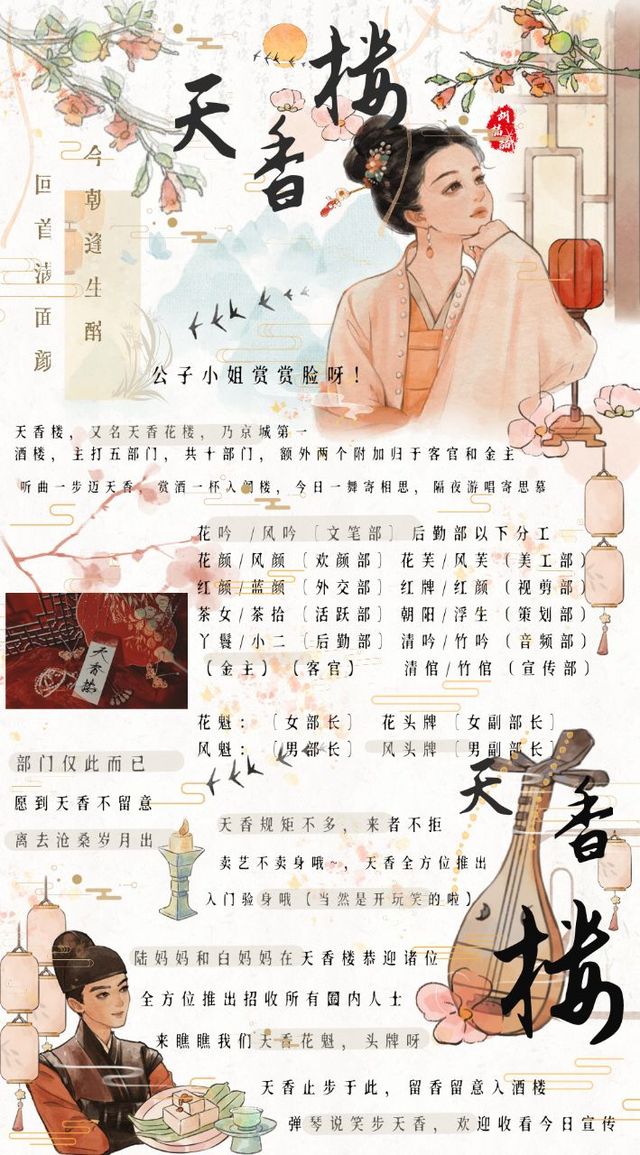 天香楼
今朝逢生酩
回首满面颜
公子小姐赏赏脸呀！
天香楼，又名天香花楼，乃京城第一
酒楼，主打五部门，共十部门，额外两个附加归于客官和金主
听曲一步迈天香，赏酒一杯入阁楼，今日一舞寄相思，隔夜游唱寄思慕
花吟 /风吟〔文笔部〕后勤部以下分工
花颜/风颜〔欢颜部〕花芙/风芙（美工部）
红颜/蓝颜〔外交部〕红牌/红颜（视剪部）
茶女/茶拾〔活跃部〕朝阳/浮生（策划部）
丫鬟/小二〔后勤部〕清吟/竹吟（音频部）
（金主）（客官） 清倌/竹倌（宣传部）
天香楼
花魁：〔女部长〕 花头牌〔女副部长〕
风魁：〔男部长〕 风头牌〔男副部长〕
部门仅此而已
愿到天香不留意
离去沧桑岁月出
天香规矩不多，来者不拒
卖艺不卖身哦~，天香全方位推出
入门验身哦（当然是开玩笑的啦）
天香楼
陆妈妈和白妈妈在天香楼恭迎诸位
全方位推出招收所有圈内人士
来瞧瞧我们天香花魁，头牌呀
天香止步于此，留香留意入酒楼
弹琴说笑步天香，欢迎收看今日宣传